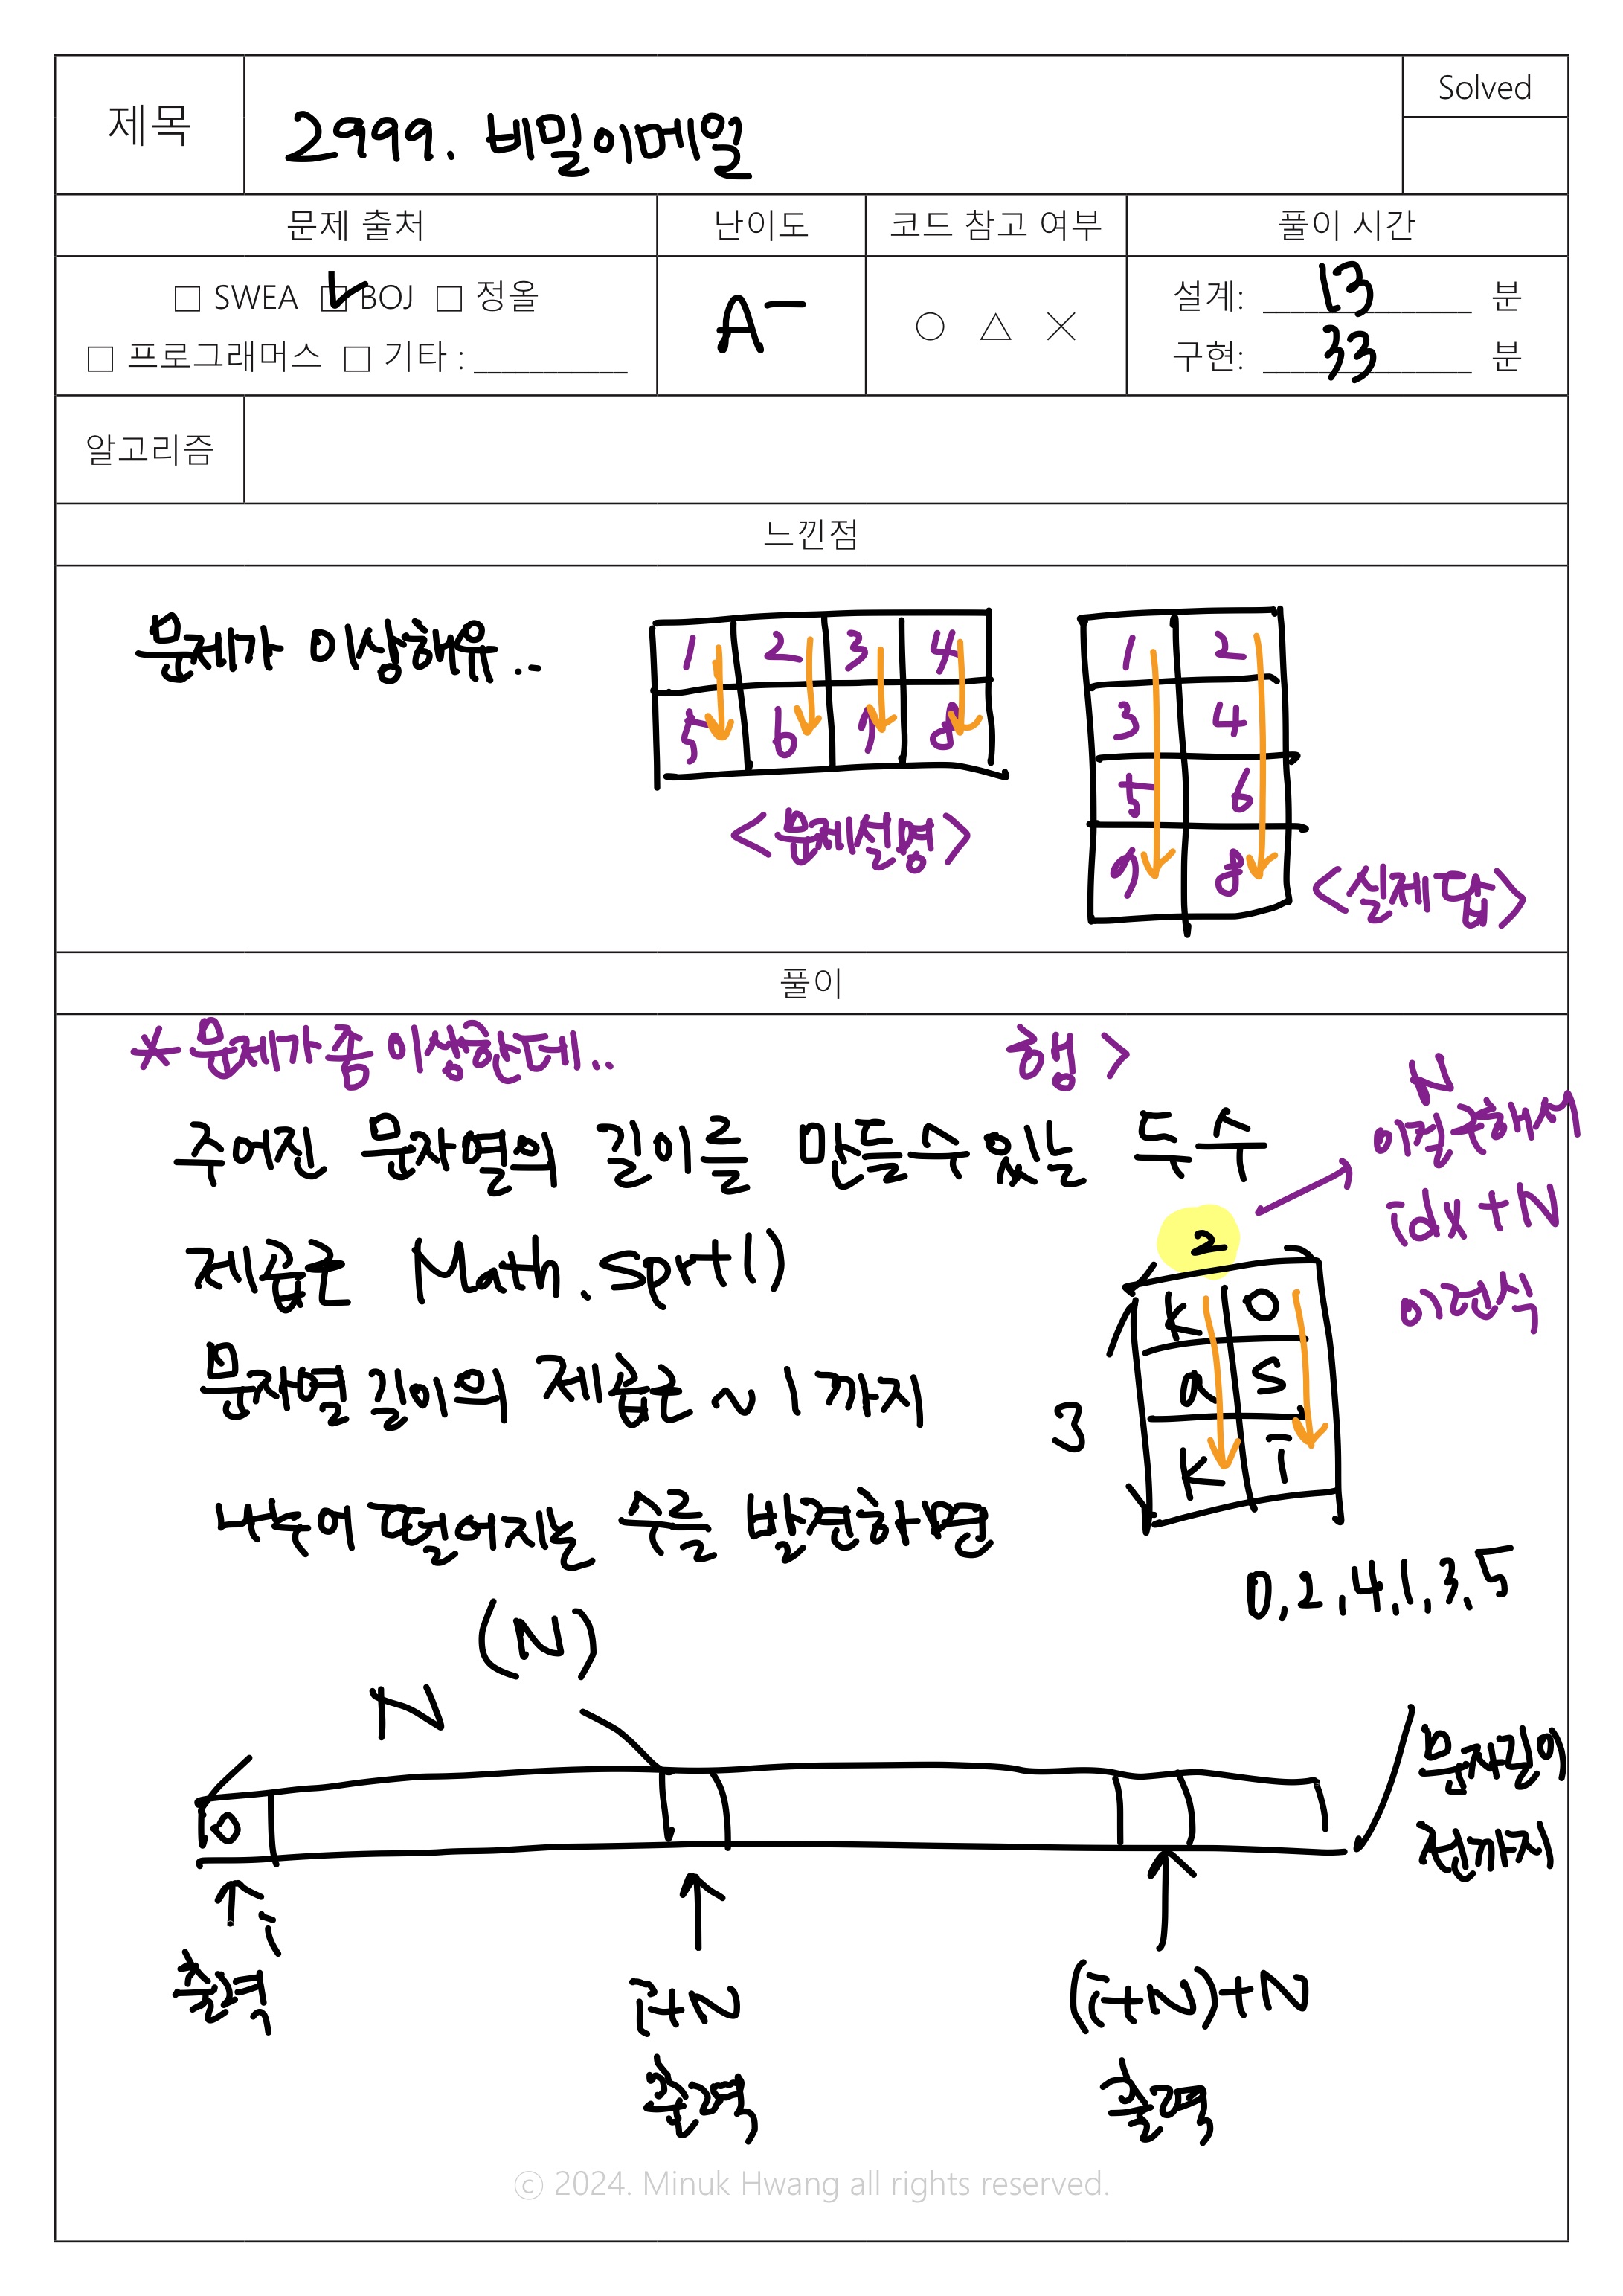 제목
2999. 비밀이메일
Solved
문제 출처
난이도
코드 참고 여부
풀이 시간
□ SWEA □ BOJ □ 정올
□ 프로그래머스 □ 기타 : __________
A-
○ △ ×
설계: 13 분
구현: 33 분
알고리즘
느낀점
문제가 이상해유..
1 2 3 4
5 6 7 8
<문제설명>
1 2
3 4
5 6
7 8
<실제답>
풀이
*문제가 좀 이상한데..
행 >
주어진 문자열의 길이를 만들수있는 두수
제곱근 Math.sprt()
문자열 길이의 제곱근 ~ 1 까지
나누어 떨어지는 수를 발견하면
(N)
N
이걸구해서
idx+N
이런식
2
3
K O
a S
K i
0,2,4,1,3,5
N
0
i
출력
i+N
출력
(i+N)+N
출력
문자길이
전까지
© 2024. Minuk Hwang all rights reserved.